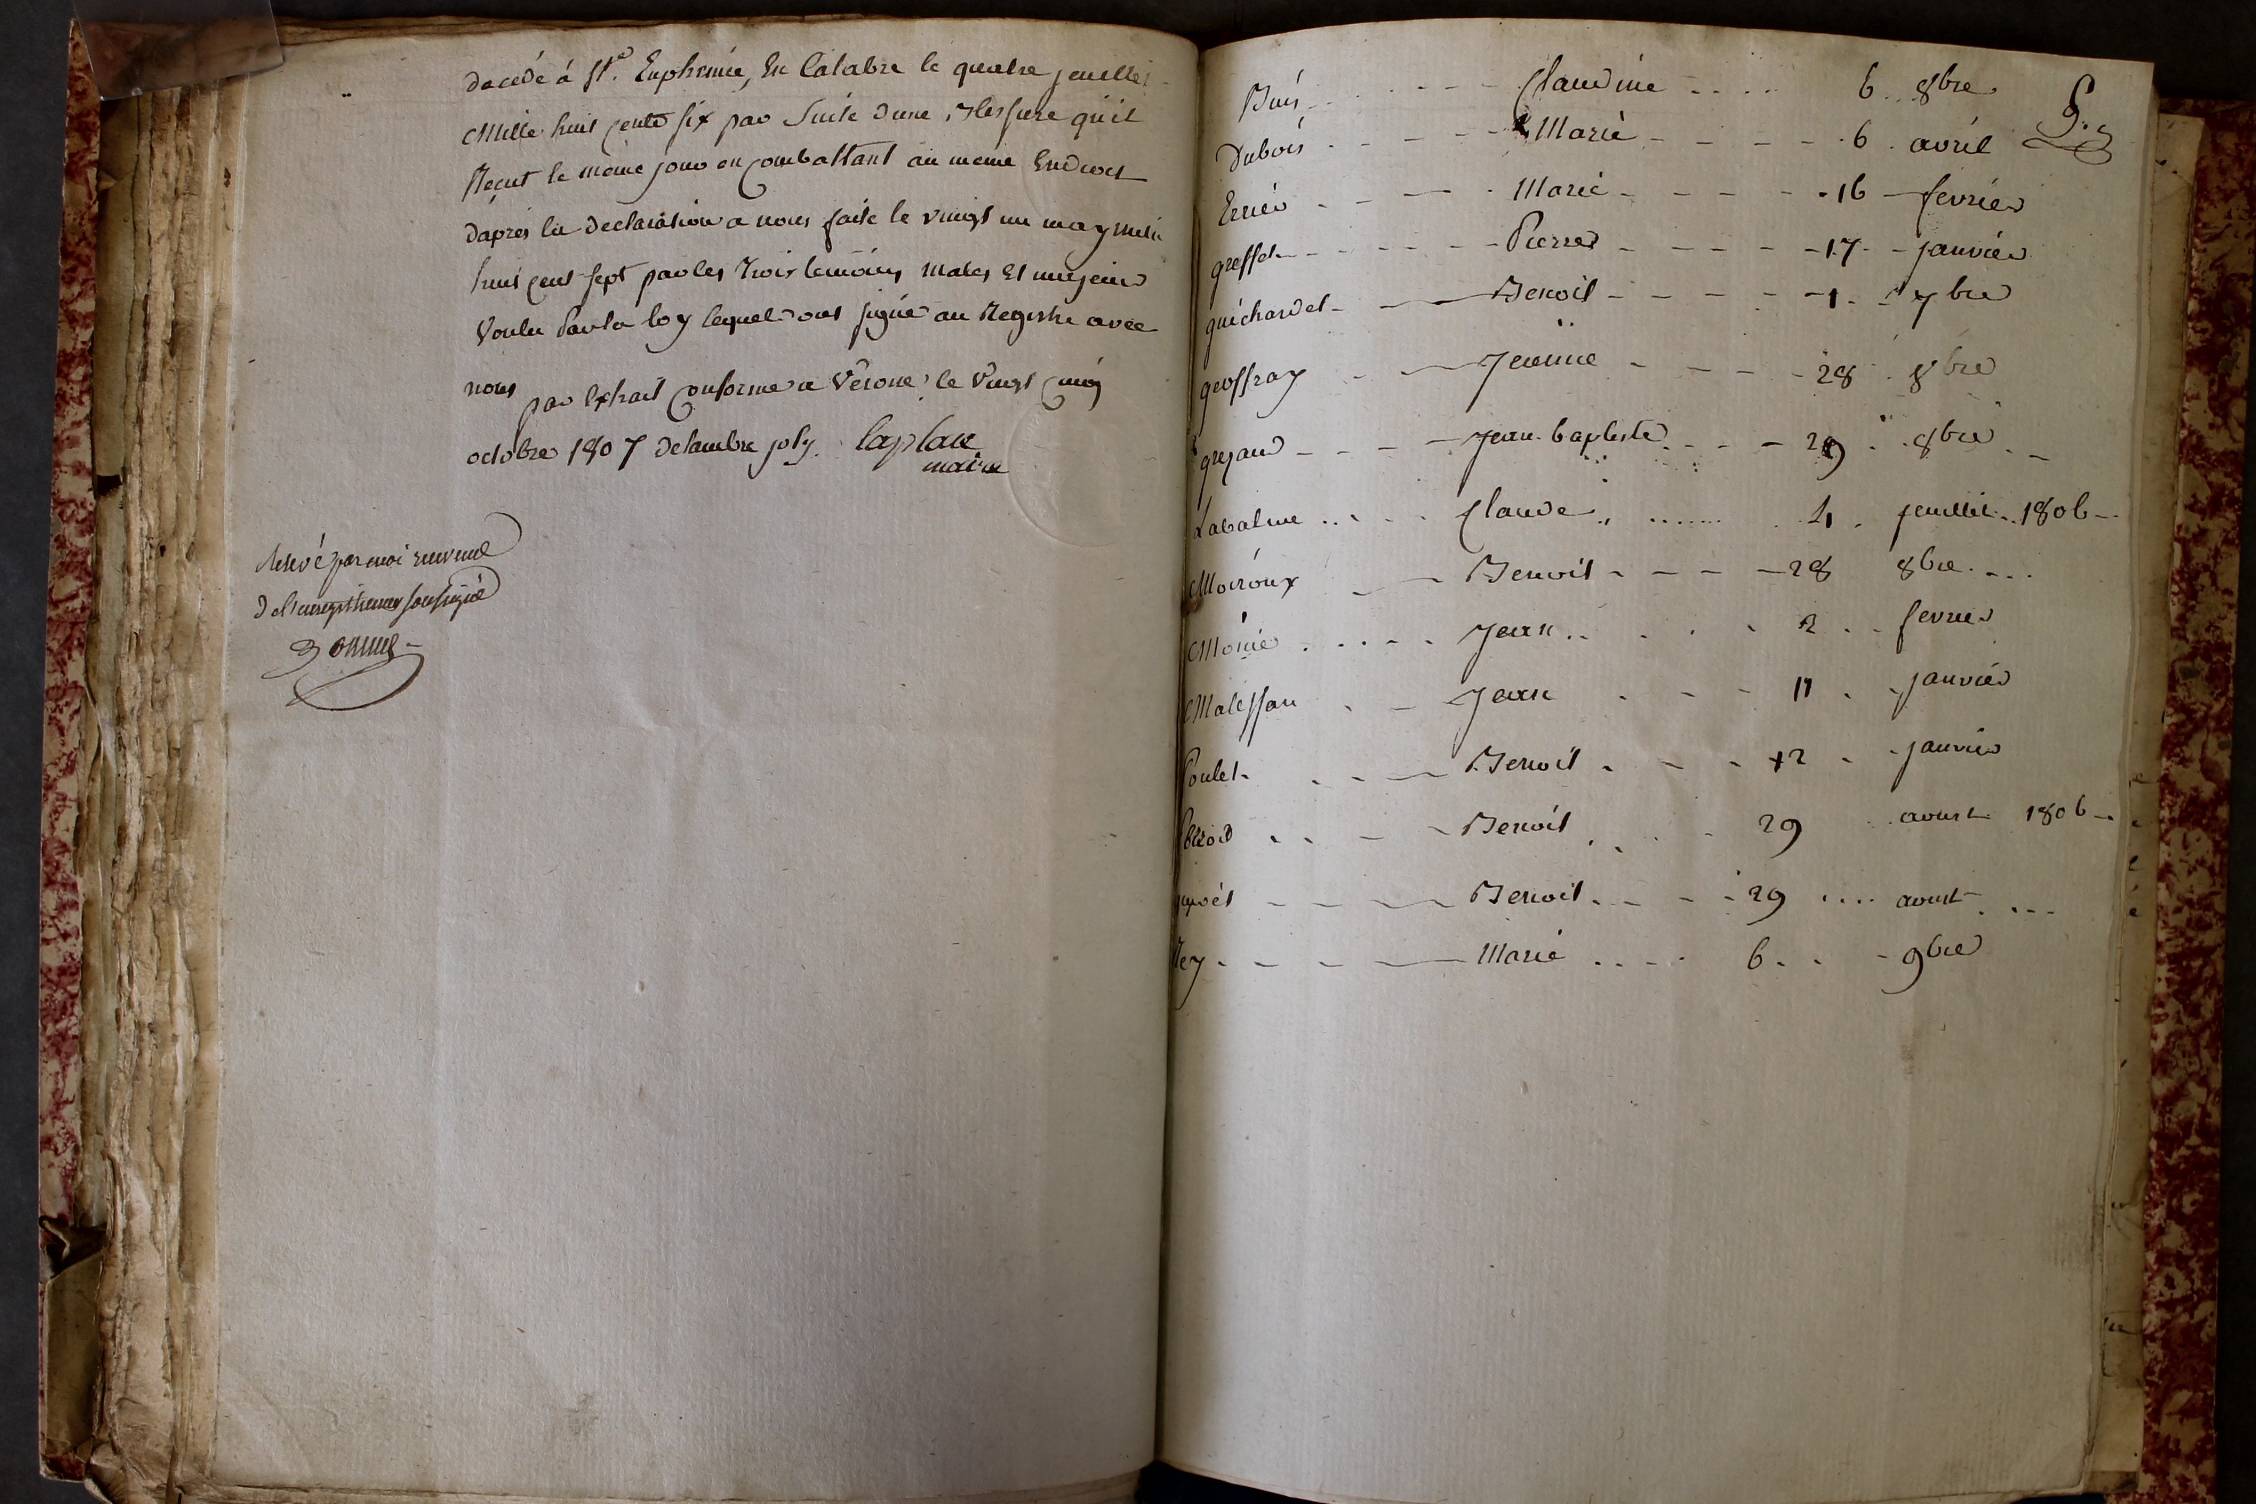 decedé á Ste. Euphemie, En Calabre le quatre jeuillet
Mille huit cents six par Suite dune Blessure qu'il
Reçut le même jour en combattant au meme Endroit
daprès la declaration a nous faite le vingt un may mille
huit cent sept par les Trois temoins males Et majeurs
Voulu Par la loy lequel ont signé au Registre avec
nous
par Extrait Conforme a Vérone le Vingt cinq
octobre 1807 Delambre joly. laplace
maire
relevé par moi receveur
de l'enregistrement soussigné
Buis Claudine 6 8bre
9.
Dubois Marie 6 avril
Errier Marie 16 fevrier
greffet Pierre 17 janvier
guichardet Benoit 1 7bre
geoffray Jeanne 28 8bre
grejaud Jean-baptiste 29 8bre
Labalme Claude 4 jeuillet 1806
Moiroux Benoit 28 8bre
Monié Jean 2 fevrier
Malessau Jean 11 janvier
Poulet Benoit 12 janvier
Benoit 29 aoust 1806
Benoit 29 aoust
Rey Marie 6 9bre